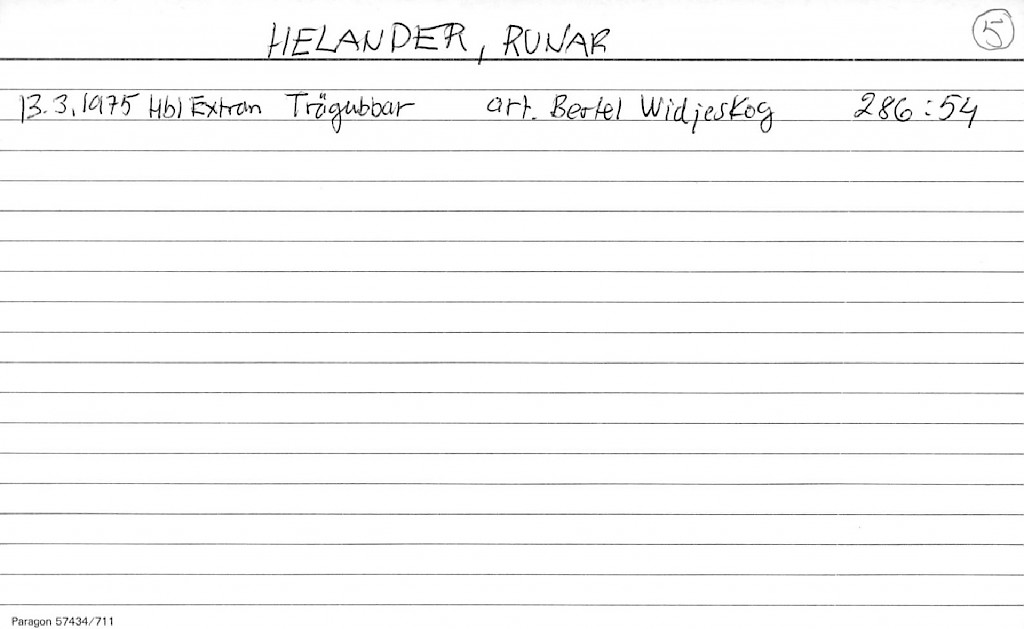 HELANDER, RUNAR 5
13.3.1975 Hbl Extran Trägubbar art. Bertel Widjeskog 286:54
Paragon 57434/711